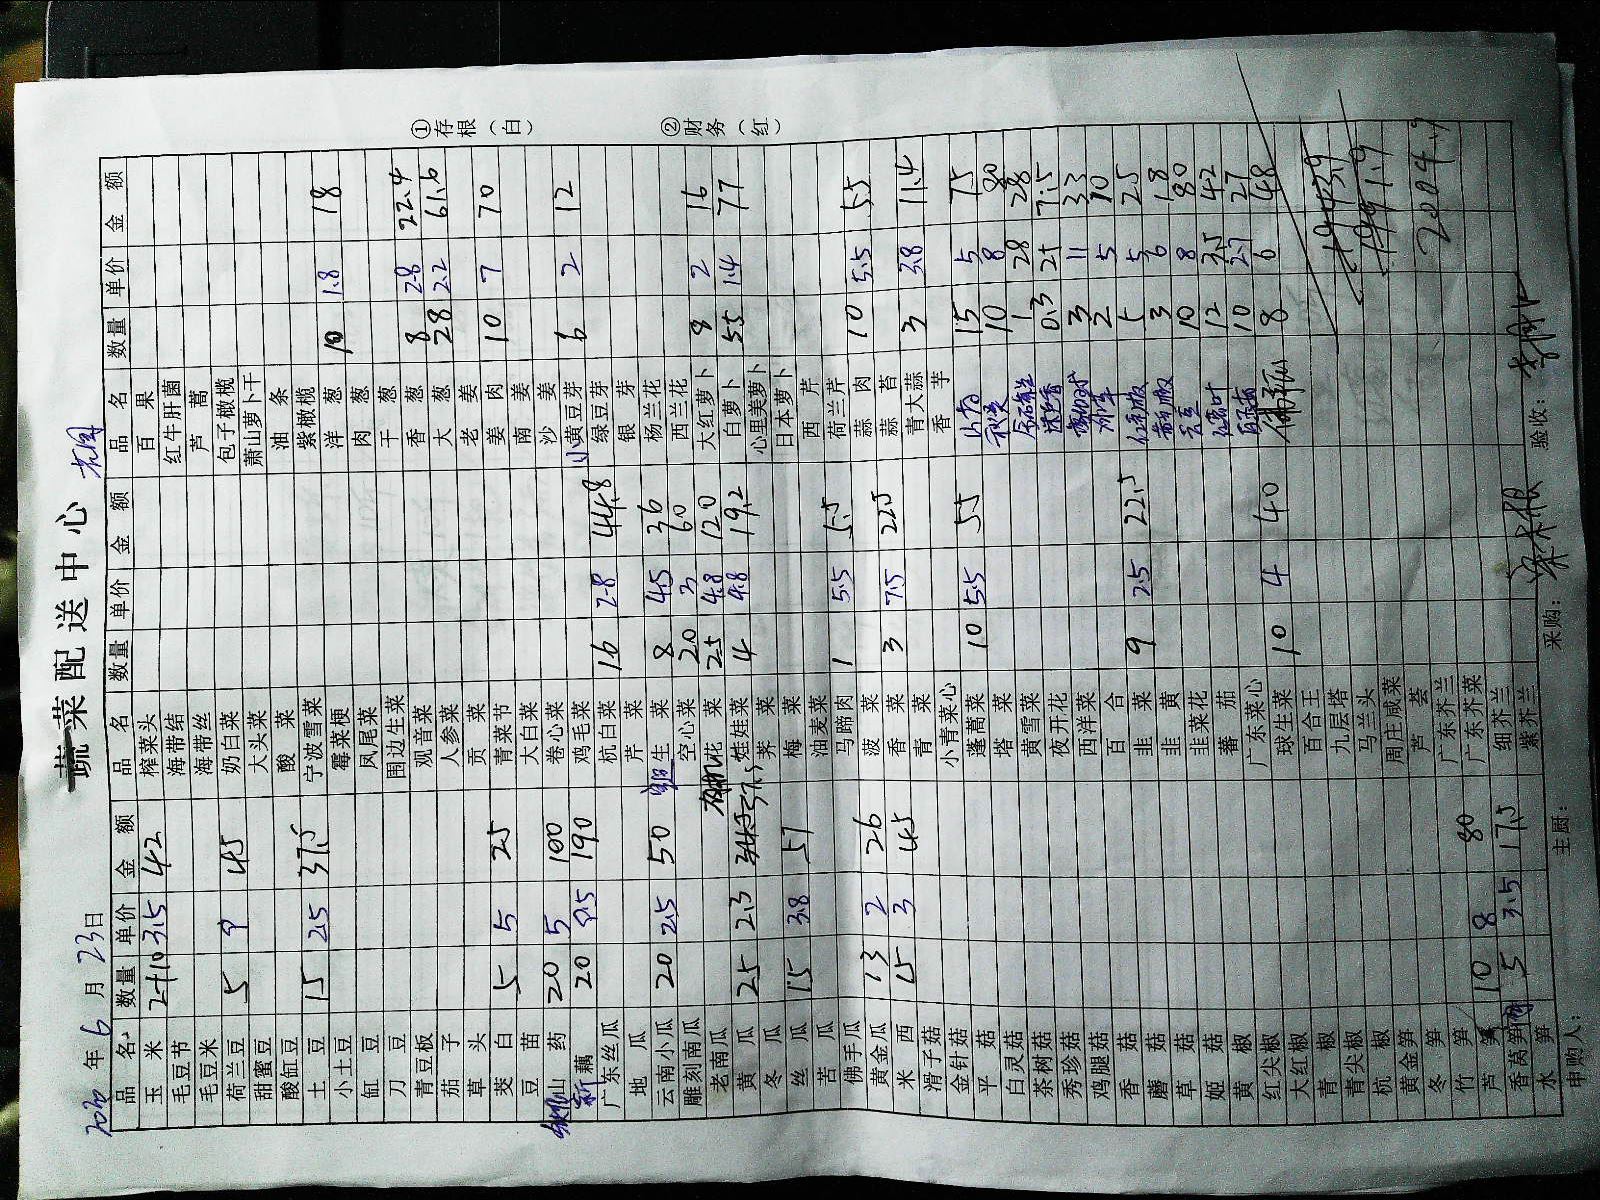 蔬菜配送中心
年 6 月 23 日
品名 数量 单价 金额 品名 数量 单价 金额 品名 数量 单价 金额
玉米 2+10 3.5 42 榨菜头 百果
毛豆节 海带结 红牛肝菌
毛豆米 海带丝 芦蒿
荷兰豆 5 9 45 奶白菜 包子橄榄
甜蜜豆 大头菜 萧山萝卜干
酸缸豆 酸菜 油条
土豆 15 2.5 37.5 宁波雪菜 紫橄榄
小土豆 霉菜梗 洋葱 10 1.8 18
缸豆 凤尾菜 肉葱
刀豆 围边生菜 干葱
青豆板 观音菜 香葱 8 2.8 22.4
茄子 人参菜 大葱 28 2.2 61.6
草头 贡菜 老姜
茭白 5 5 25 青菜节 姜肉 10 7 70
豆苗 大白菜 南姜
山药 20 5 100 卷心菜 沙姜
藕 20 9.5 190 鸡毛菜 小黄豆芽 6 2 12
广东丝瓜 杭白菜 16 2.8 44.8 绿豆芽
地瓜 芹菜 银芽
云南小瓜 20 2.5 50 生菜 8 4.5 36 杨兰花
雕刻南瓜 空心菜 20 3 60 西兰花
老南瓜 花菜 25 4.8 120 大红萝卜 8 2 16
黄瓜 25 2.3 57.5 娃娃菜 4 4.8 19.2 白萝卜 55 1.4 77
冬瓜 荠菜 心里美萝卜
丝瓜 15 3.8 57 梅菜 日本萝卜
苦瓜 油麦菜 西芹
佛手瓜 马蹄肉 1 5.5 5.5 荷兰芹
黄金瓜 13 2 26 菠菜 蒜肉 10 5.5 55
米西 15 3 45 香菜 3 7.5 22.5 蒜苔
滑子菇 青菜 青大蒜 3 3.8 11.4
金针菇 小青菜心 香芋
平菇 蓬蒿菜 10 5.5 55 15 5 75
白灵菇 塔菜 10 8 80
茶树菇 黄雪菜 1 28 28
秀珍菇 夜开花 0.3 25 7.5
鸡腿菇 西洋菜 3 11 33
香菇 百合 2 5 10
蘑菇 韭菜 9 2.5 22.5 5 5 25
草菇 韭黄 3 6 18
姬菇 韭菜花 10 8 80
黄椒 蕃茄 12 3.5 42
红尖椒 广东菜心 10 2.7 27
大红椒 球生菜 10 4 40 8 6 48
青椒 百合王
青尖椒 九层塔
杭椒 马兰头
黄金笋 周庄咸菜
冬笋 芦荟
竹笋 广东芥兰
芦笋 10 8 80 广东芥菜
香莴笋 5 3.5 17.5 细芥兰
水笋 紫芥兰
申购人: 主厨: 采购: 验收:
①存根(白)
②财务(红)